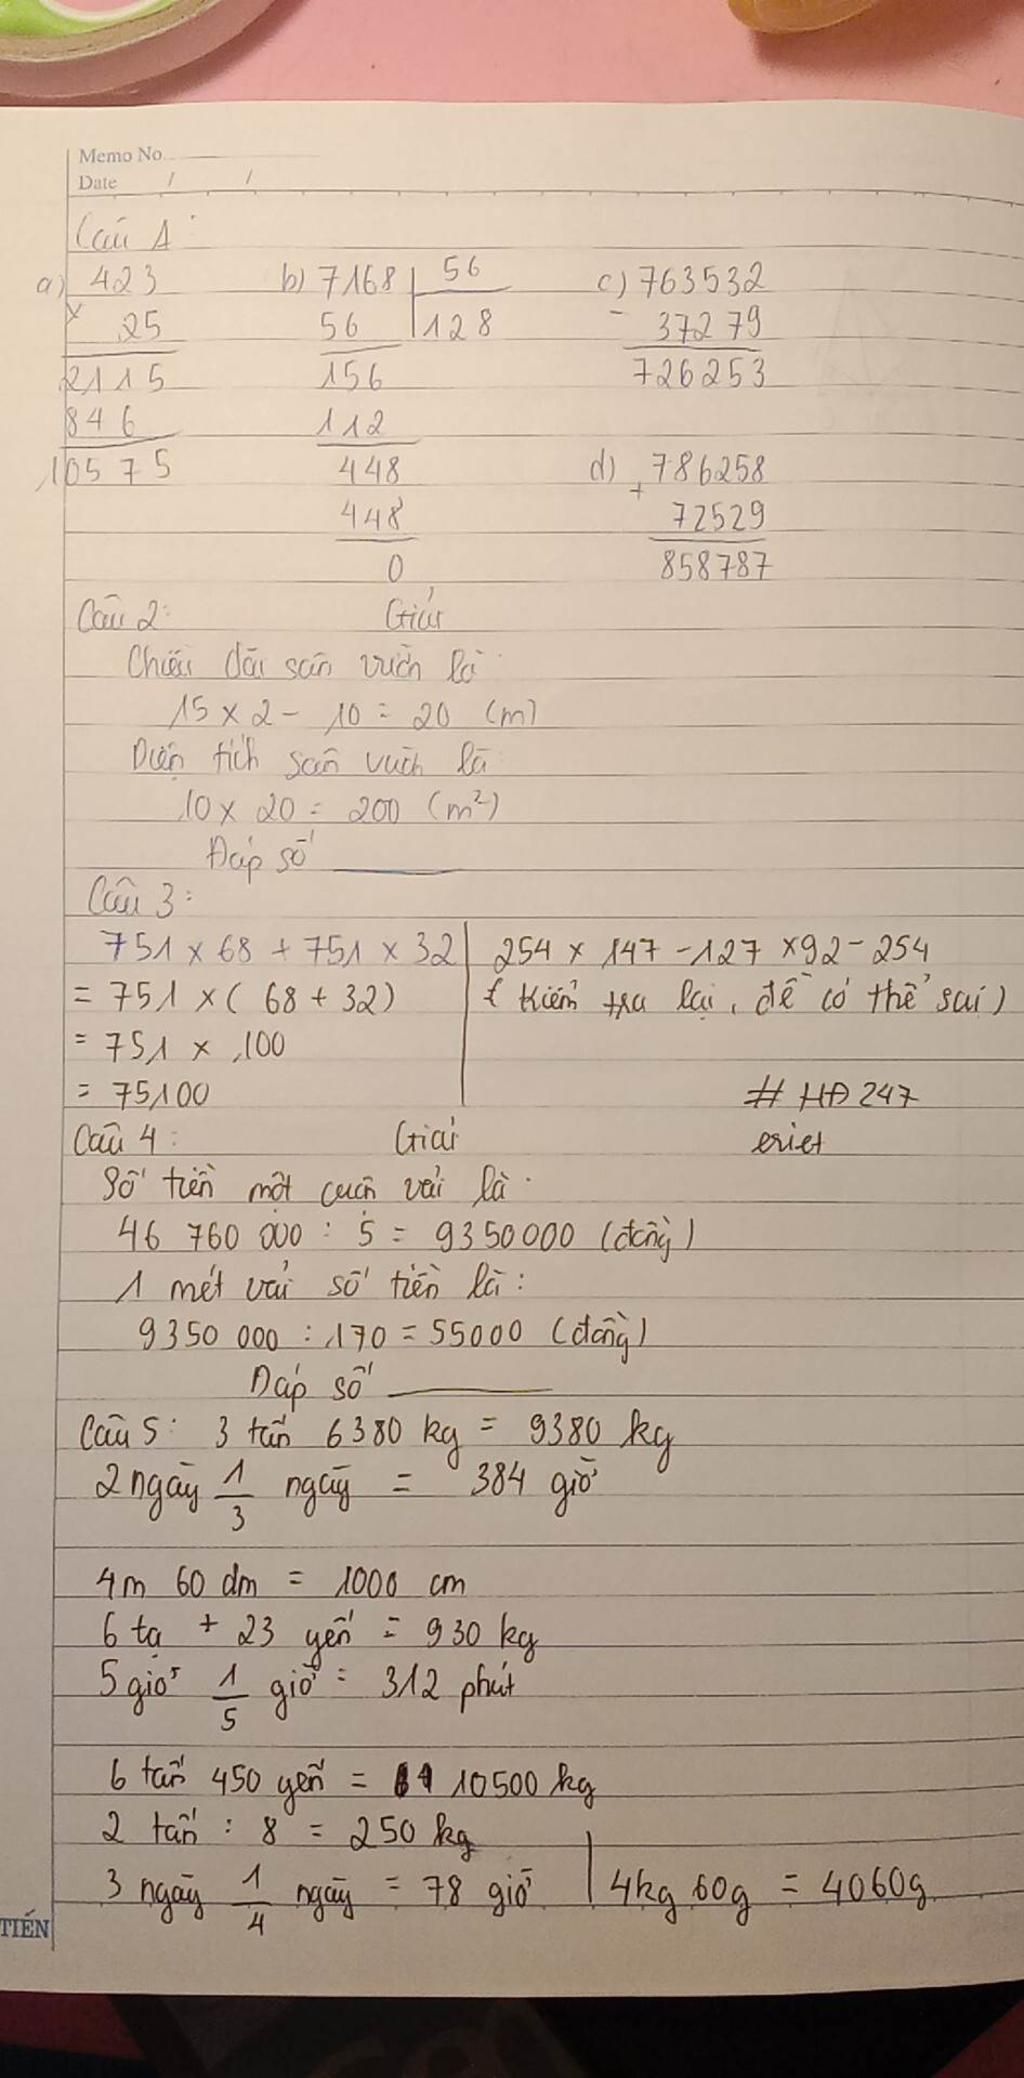 Memo No.
Date / /
Câu 1:
a) 423 b) 7168 56 c) 763532
x 25 56 128 - 37279
2115 156 726253
846 112
10575 448 d) 786258
448 + 72529
0 858787
Câu 2: Giải
Chiều dài sân vườn là:
15 x 2 - 10 = 20 (m)
Diện tích sân vườn là
10 x 20 = 200 (m²)
Đáp số
Câu 3:
751 x 68 + 751 x 32 254 x 147 - 127 x 92 - 254
= 751 x ( 68 + 32 ) ( Kiểm tra lại, đề có thể sai )
= 751 x 100
= 75100 # HĐ 247
Câu 4: Giải eriet
Số tiền một cuộn vải là:
46 760 000 : 5 = 9350000 (đồng)
1 mét vải số tiền là:
9350 000 : 170 = 55000 (đồng)
Đáp số
Câu 5: 3 tấn 6380 kg = 9380 kg
2 ngày 1/3 ngày = 384 giờ
4m 60 dm = 1000 cm
6 tạ + 23 yến = 930 kg
5 giờ 1/5 giờ = 312 phút
6 tấn 450 yến = 10500 kg
2 tấn : 8 = 250 kg
3 ngày 1/4 ngày = 78 giờ 4kg 60g = 4060g
TIẾN